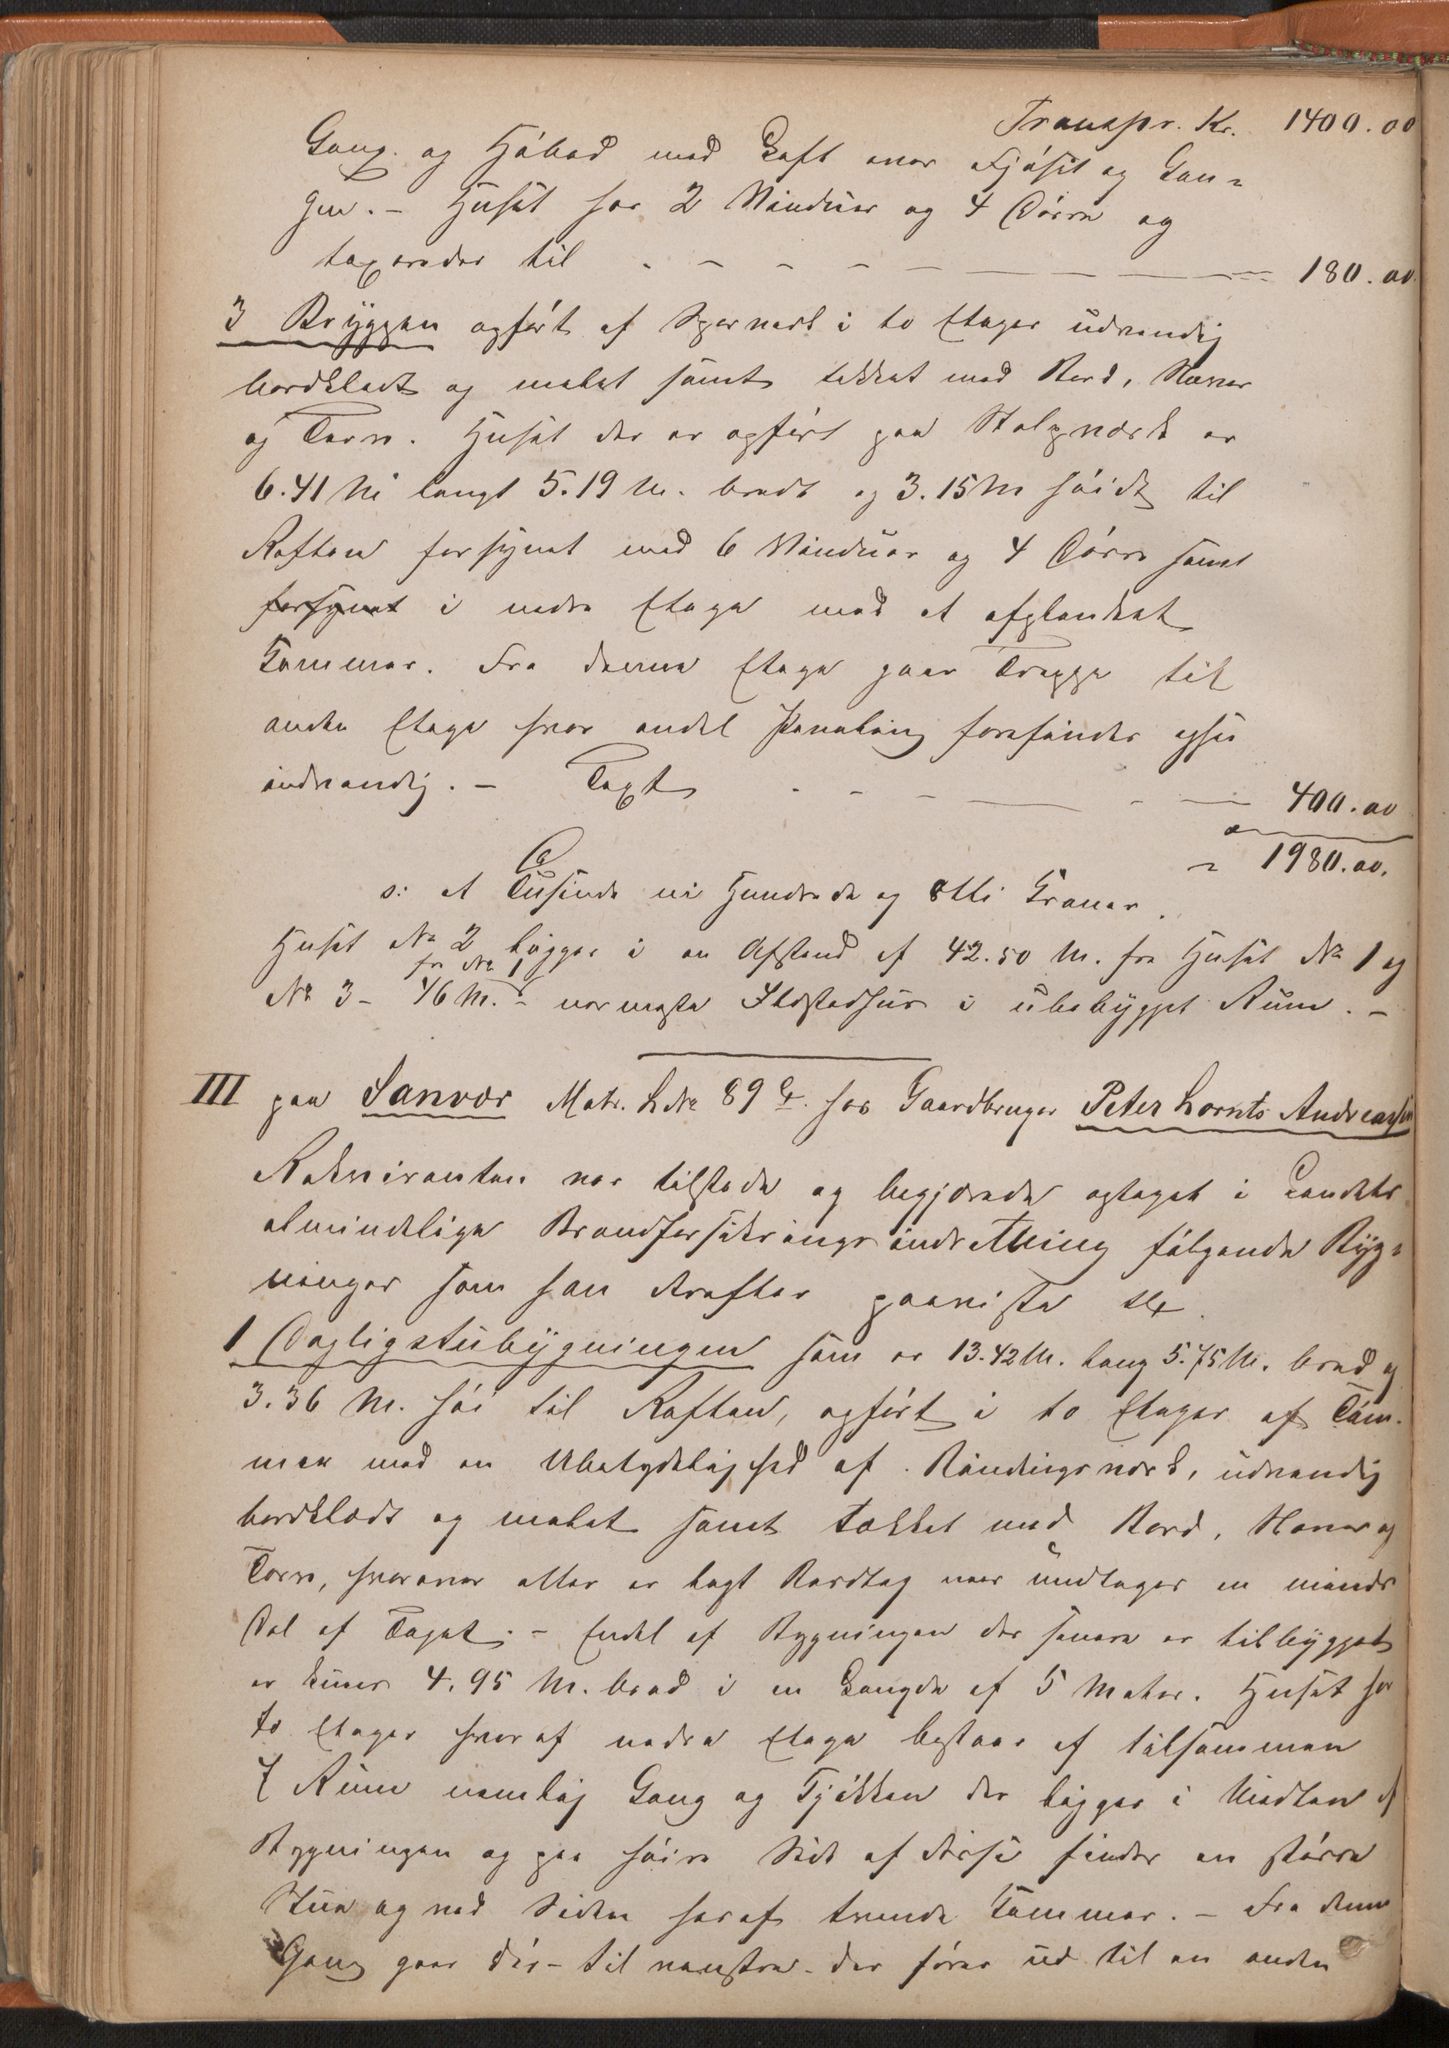 Transpr. Kr. 1400.00
Gang. og Høbod med Loft over Fjøset og Gan-
gen. - Huset har 2 Vinduer og 4 Dørre og
taxeredes til - - - - - 180.00
3 Bryggen opført af Sperverk i to Etager udvendig
bordklædt og malet samt tækket med Bord, Næver
og Torv. Huset der er opført paa Stolpværk er
6.41 M langt 5.19 M. bredt og 3.15 M høidt til
Raften forsynet med 6 Vinduer og 4 Dørre samt
forsynet i nedre Etage med et afplanket
Kammer. Fra denne Etage gaar Trappe til
anden Etage hvor endel Paneling forefindes ogsaa
indvendig. - Taxt - - - - 400.00
1980.00.
s: et Tusinde ni Hundrede og otti Kroner.
Huset No 2 ligger i en Afstand af 42.50 M. fra Huset No 1 og
No 3 - 46 M. fra No 1 - nærmeste Ildstedhus i ubebygget Rum. -
III paa Sanvær Matr. L No 89 hos Gaardbruger Peter Lornts Andreassen
Rekvirenten var tilstede og begjærede optaget i Landets
almindelige Brandforsikringsindretning følgende Byg-
ninger som han derefter paaviste
1 Dagligstubygningen som er 13.42 M. lang 5.75 M. bred og
3.36 M. høi til Raften, opført i to Etager af Tøm-
mer med en Ubetydelighed af Bindingsverk, udvendig
bordklædt og malet samt tækket med Bord, Næver og
Torv, hvorover atter er lagt Bordtag naar undtages en mindre
Del af Taget. - Endel af Bygningen der senere er tilbygget
er kuner 4.95 M. bred i en Længde af 5 Meter. Huset har
to Etager hvoraf nedre Etage bestaar af tilsammen
7 Rum nemlig Gang og Kjøkken der ligger i Midten af
Bygningen og paa høire Side af disse findes en større
Stue og ved Siden heraf tvende Kammer. - Fra denne
Gang gaar Dør til venstre der fører ud til en anden